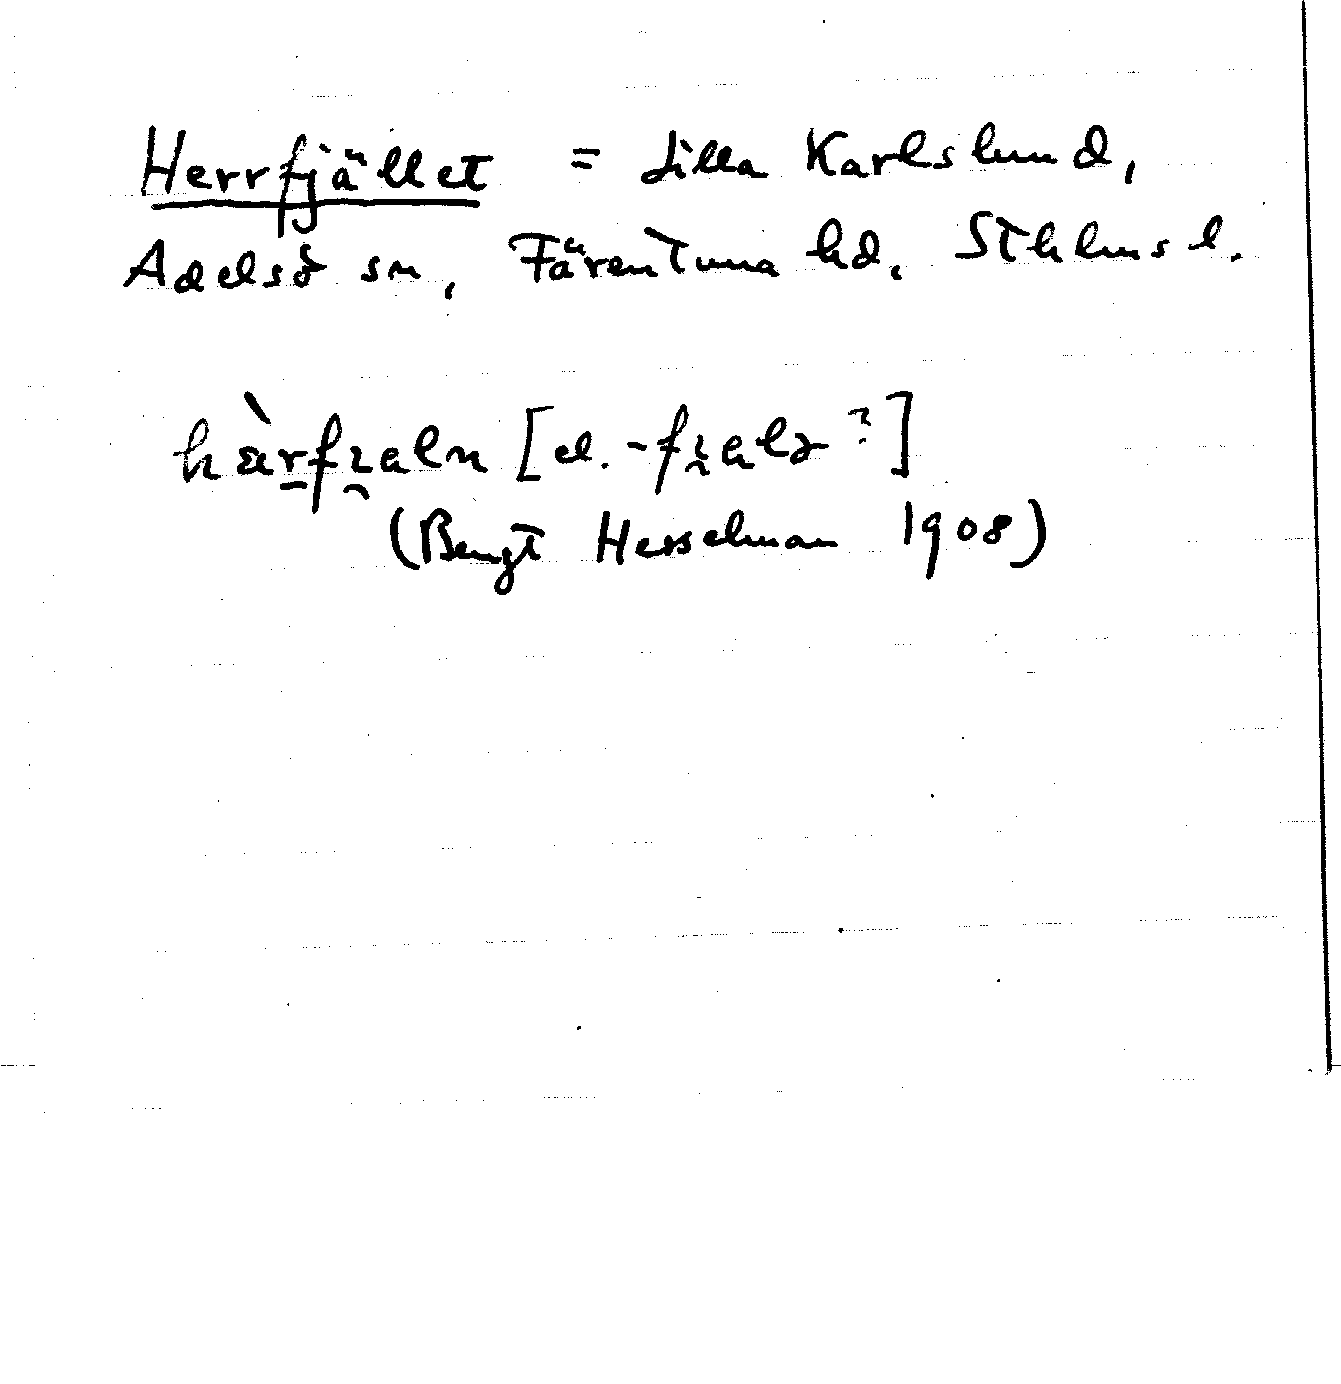 Herrfjället = Lilla Karlslund,
Adelsö sn, Färentuna hd, Sthlms l.
hàrfɿaln [el. -fɿalə?]
(Bengt Hesselman 1908)